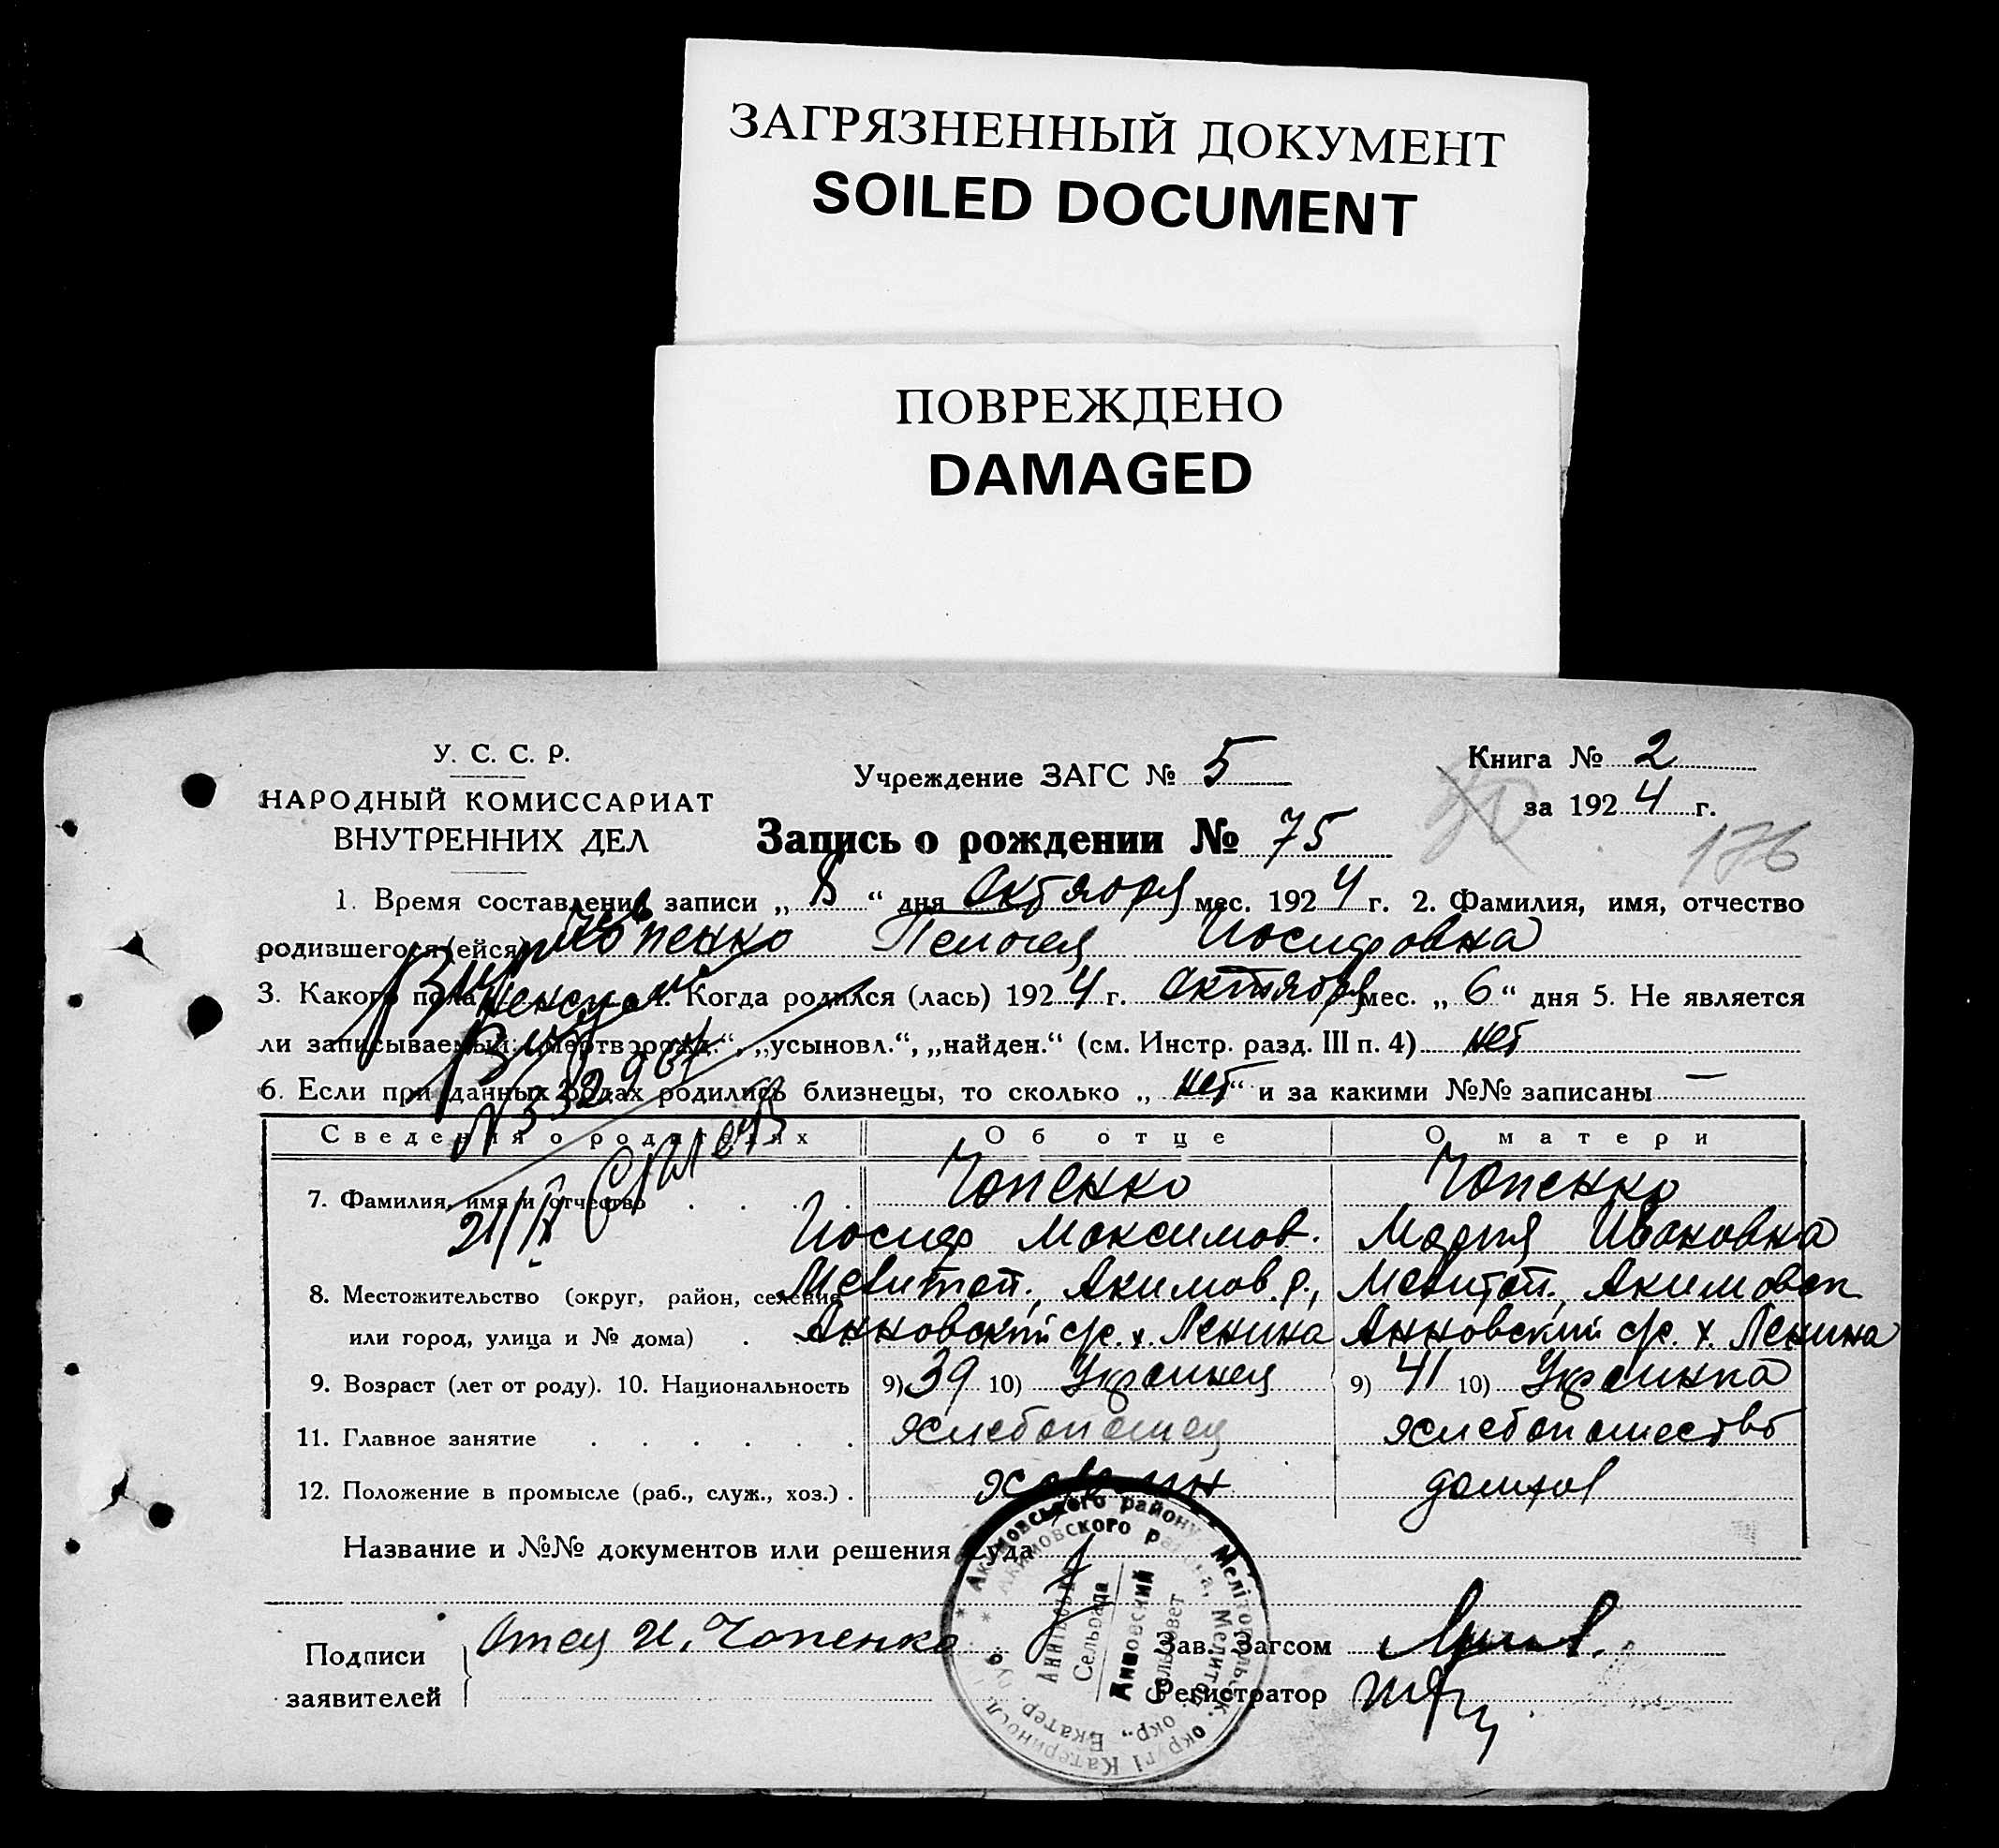 ЗАГРЯЗНЕННЫЙ ДОКУМЕНТ
SOILED DOCUMENT
ПОВРЕЖДЕНО
DAMAGED
У. С. С. Р.
НАРОДНЫЙ КОМИССАРИАТ
ВНУТРЕННИХ ДЕЛ
Учреждение ЗАГС № 5
Книга № 2
за 1924 г.
Запись о рождении № 75
176
1. Время составления записи „ 8 “ дня Октября мес. 1924 г. 2. Фамилия, имя, отчество
родившегося (ейся) Чопенко Пелогея Иосифовна
3. Какого пола Женский 4. Когда родился (лась) 1924 г. Октября мес. „ 6 “ дня 5. Не является
ли записываемый: „мертворожд.“, „усыновл.“, „найден.“ (см. Инстр. разд. III п. 4) нет
6. Если при данных родах родились близнецы, то сколько „ нет “ и за какими №№ записаны —
Сведения о родителях Об отце О матери
7. Фамилия, имя и отчество Чопенко Чопенко
Иосиф Максимов. Мария Ивановна
8. Местожительство (округ, район, селение Мелитоп., Акимов. р., Мелитоп., Акимовск
или город, улица и № дома) Анновский с/с. х. Ленина Анновский с/с. х. Ленина
9. Возраст (лет от роду). 10. Национальность 9) 39 10) Украинец 9) 41 10) Украинка
11. Главное занятие хлебопашец хлебопашество
12. Положение в промысле (раб., служ., хоз.) хозяин
Название и №№ документов или решения Суда
Подписи заявителей Отец И. Чопенко
Зав. Загсом
Регистратор
Акимовського району, Мелітопольськ. округі Катеринослав.
Акимовского района, Мелитоп. окр., Екатер. губ.
Сельрада
Анновский
Сельсовет